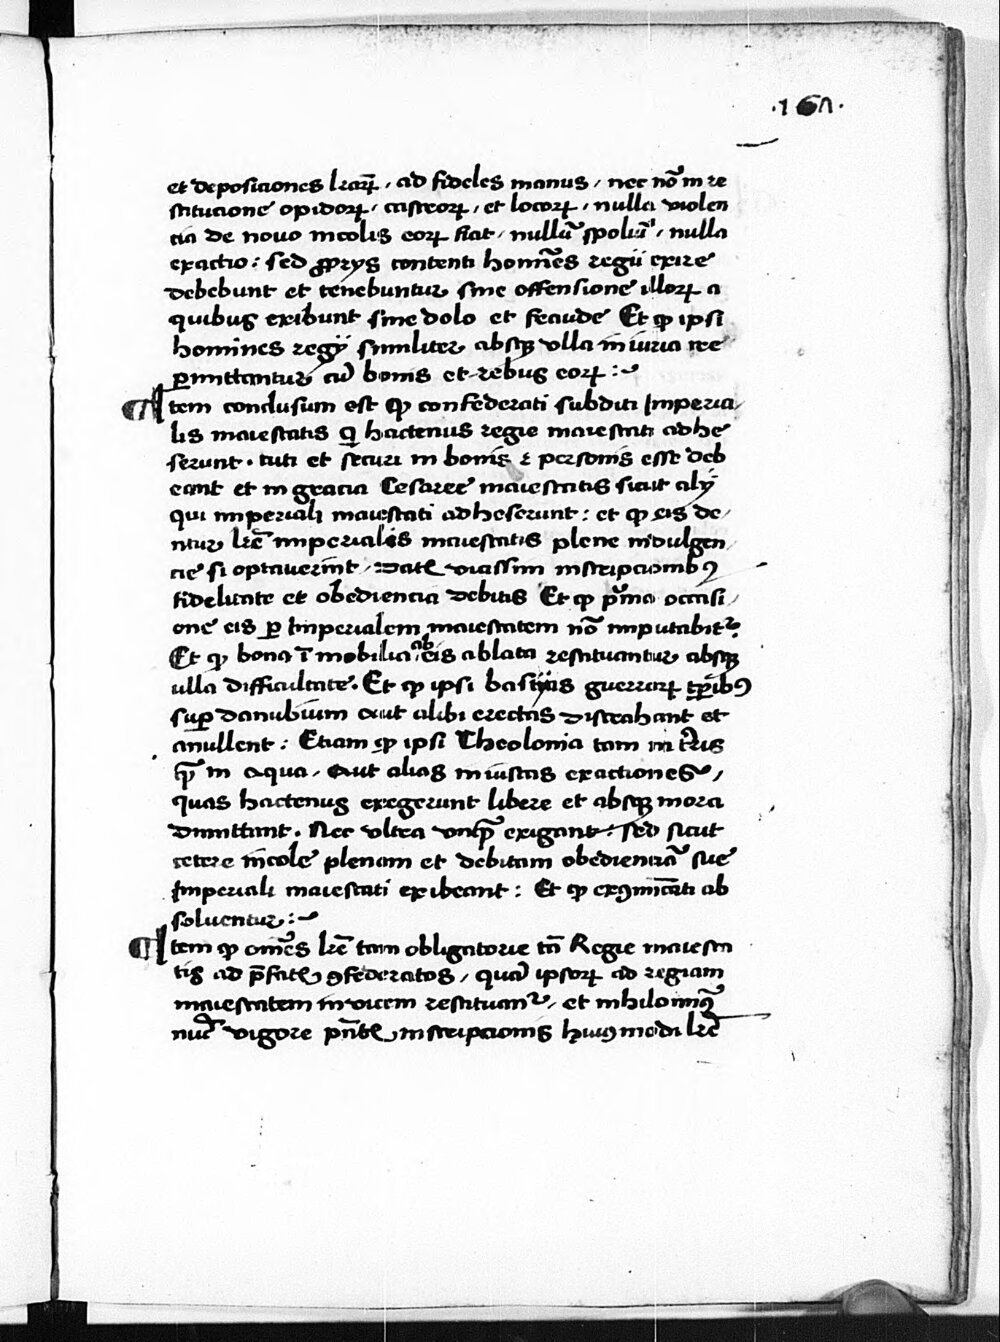 ·167·
et deposiciones lrarꝝ, ad fideles manus, nec nō in re
stitucione opidorꝝ, castrorꝝ, et locorꝝ, nulla violen
cia de novo incolis eorꝝ fiat, nullū spoliū, nulla
exactio: sed ꝓprys contenti homīes regii exire
debebunt et tenebuntur sine offensione illorꝝ a
quibus exibunt sine dolo et fraude Et ꝙ ipsi
homines regÿ similiter absqꝫ ulla iniuria
ꝑmittantur cū bonis et rebus eorꝝ :~
Item conclusum est ꝙ confederati subditi Imperia
lis maiestatis qͥ hactenus regie maiestati adhe
serunt. tuti et securi in bonis ⁊ personis esse deb
eant et in gracia Cesaree maiestatis sicut alÿ
qui imperiali maiestati adheserunt: et ꝙ eis de/
ntur lrē imperialis maiestatis plene indulgen
cie si optaverint, vassim inscripcionibꝰ
fidelitate et obediencia debitis Et ꝙ pͥma occasi/
one eis ꝑ Imperialem maiestatem nō imputabitr.
Et ꝙ bona īmobilia ab eis ablata restituantur absqꝫ
ulla difficultate. Et ꝙ ipsi bastijas guerrarꝝ tꝑibꝰ
suꝑ danubium aut alibi erectas distrahant et
anullent: Etiam ꝙ ipsi Theolonia tam in tr̄is
qͣ in aqua, aut alias iniustas exactiones,
quas hactenus exegerunt libere et absqꝫ mora
dimittant. Nec ultra unqͣ exigant: sed sicut
cetere incole plenam et debitam obedienciā sue
Imperiali maiestati exibeant: Et ꝙ exꝯmūicati ab
solventur :~
Item ꝙ omēs lrē tam obligatorie tā Regie maiesta
tis ad p̄fatꝭ ꝯfederatos, quā ipsorꝝ ad regiam
maiestatem invicem restituantr, et nihilominꝰ
vigore pn̄tꝭ inscripcionis huiꝰmodi lrē